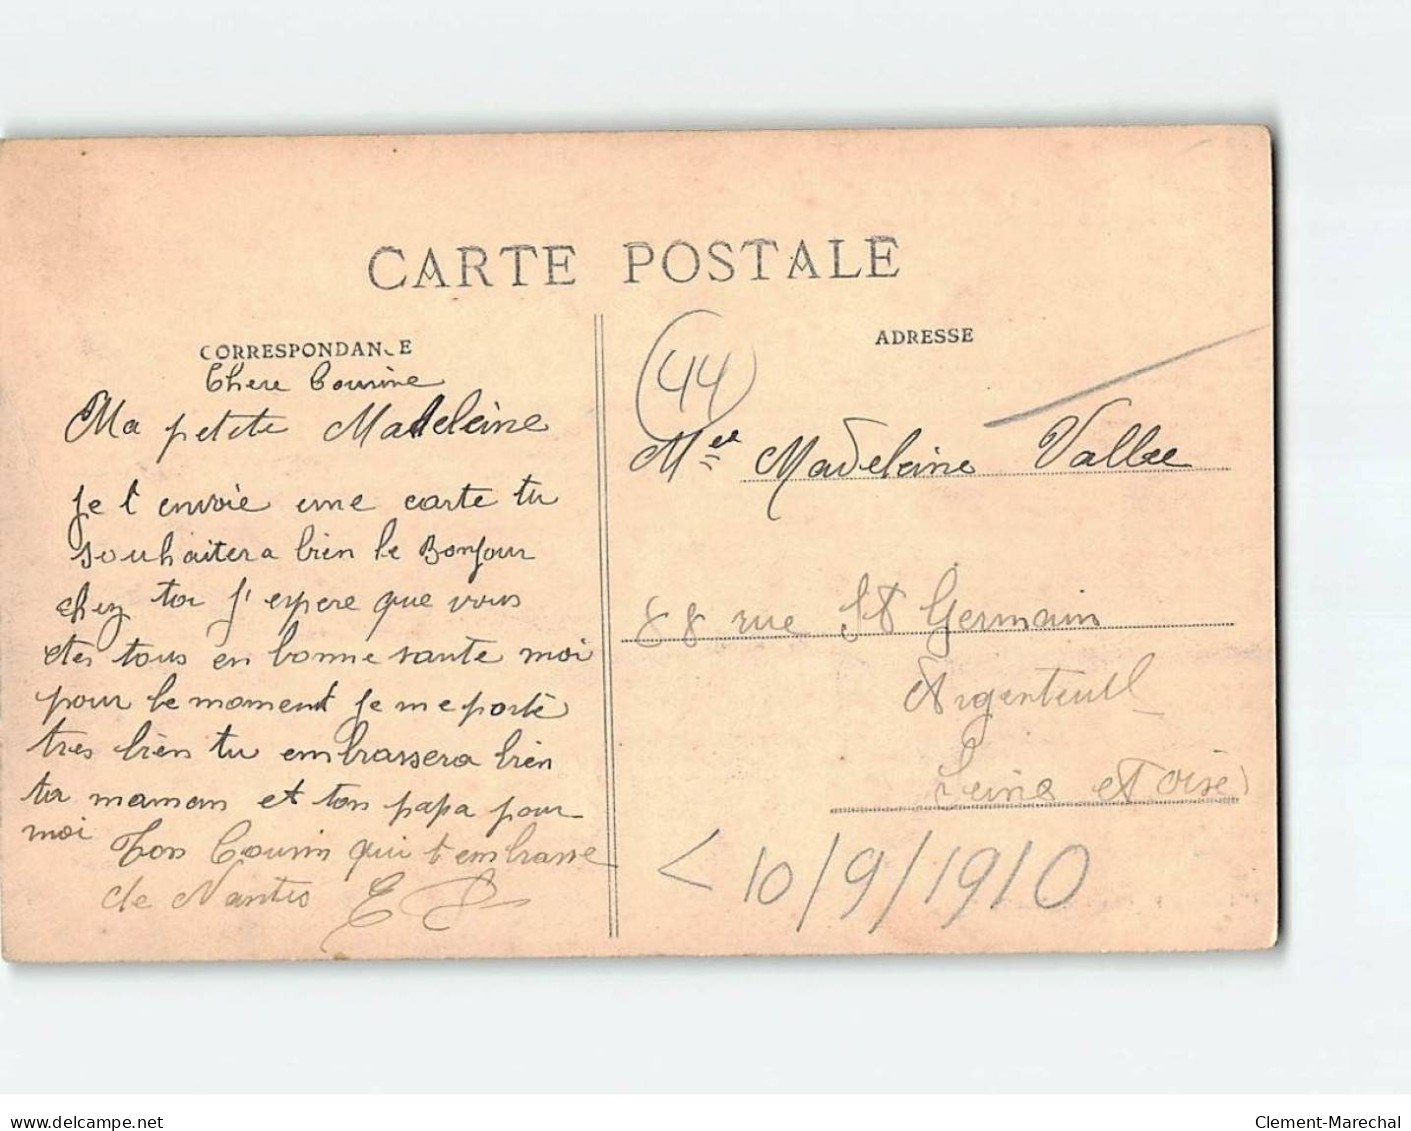 CARTE POSTALE
CORRESPONDANCE
Chere Cousine
Ma petite Madeleine
Je t envoie une carte tu
souhaitera bien le Bonjour
chez toi J'espere que vous
etes tous en bonne sante moi
pour le moment je me porte
tres bien tu embrassera bien
ta maman et ton papa pour
moi
Ton Cousin qui t embrasse
de Nantes
ADRESSE
44
Melle Madeleine Vallee
88 rue St Germain
Argenteuil
Seine et Oise
< 10/9/1910
www.delcampe.net
Clement-Marechal